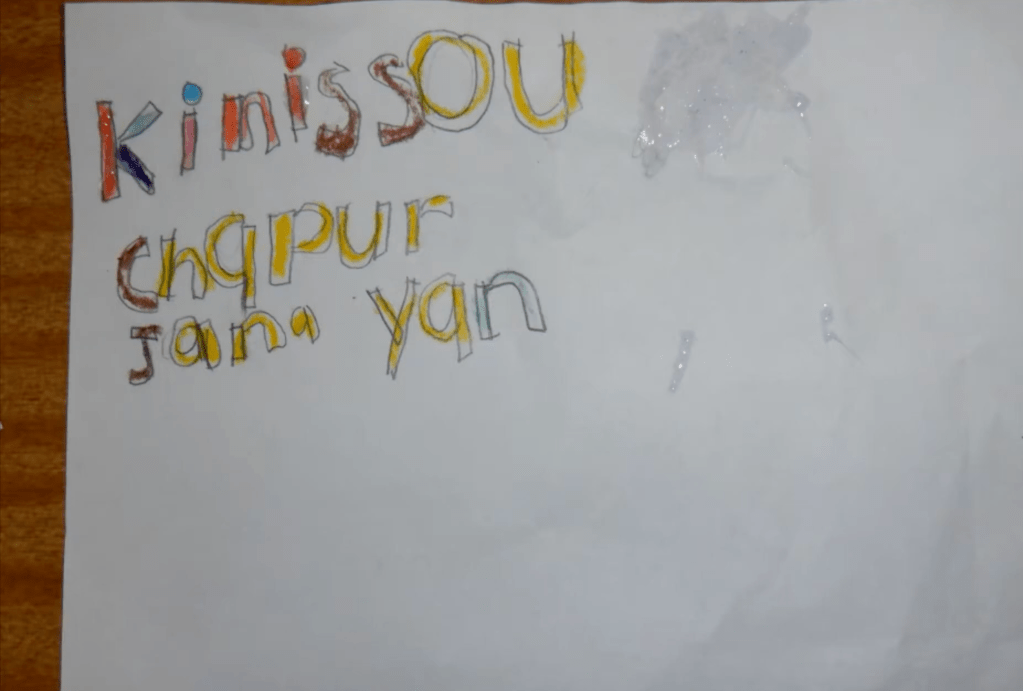 Kinissou
Chapur
Jana yan